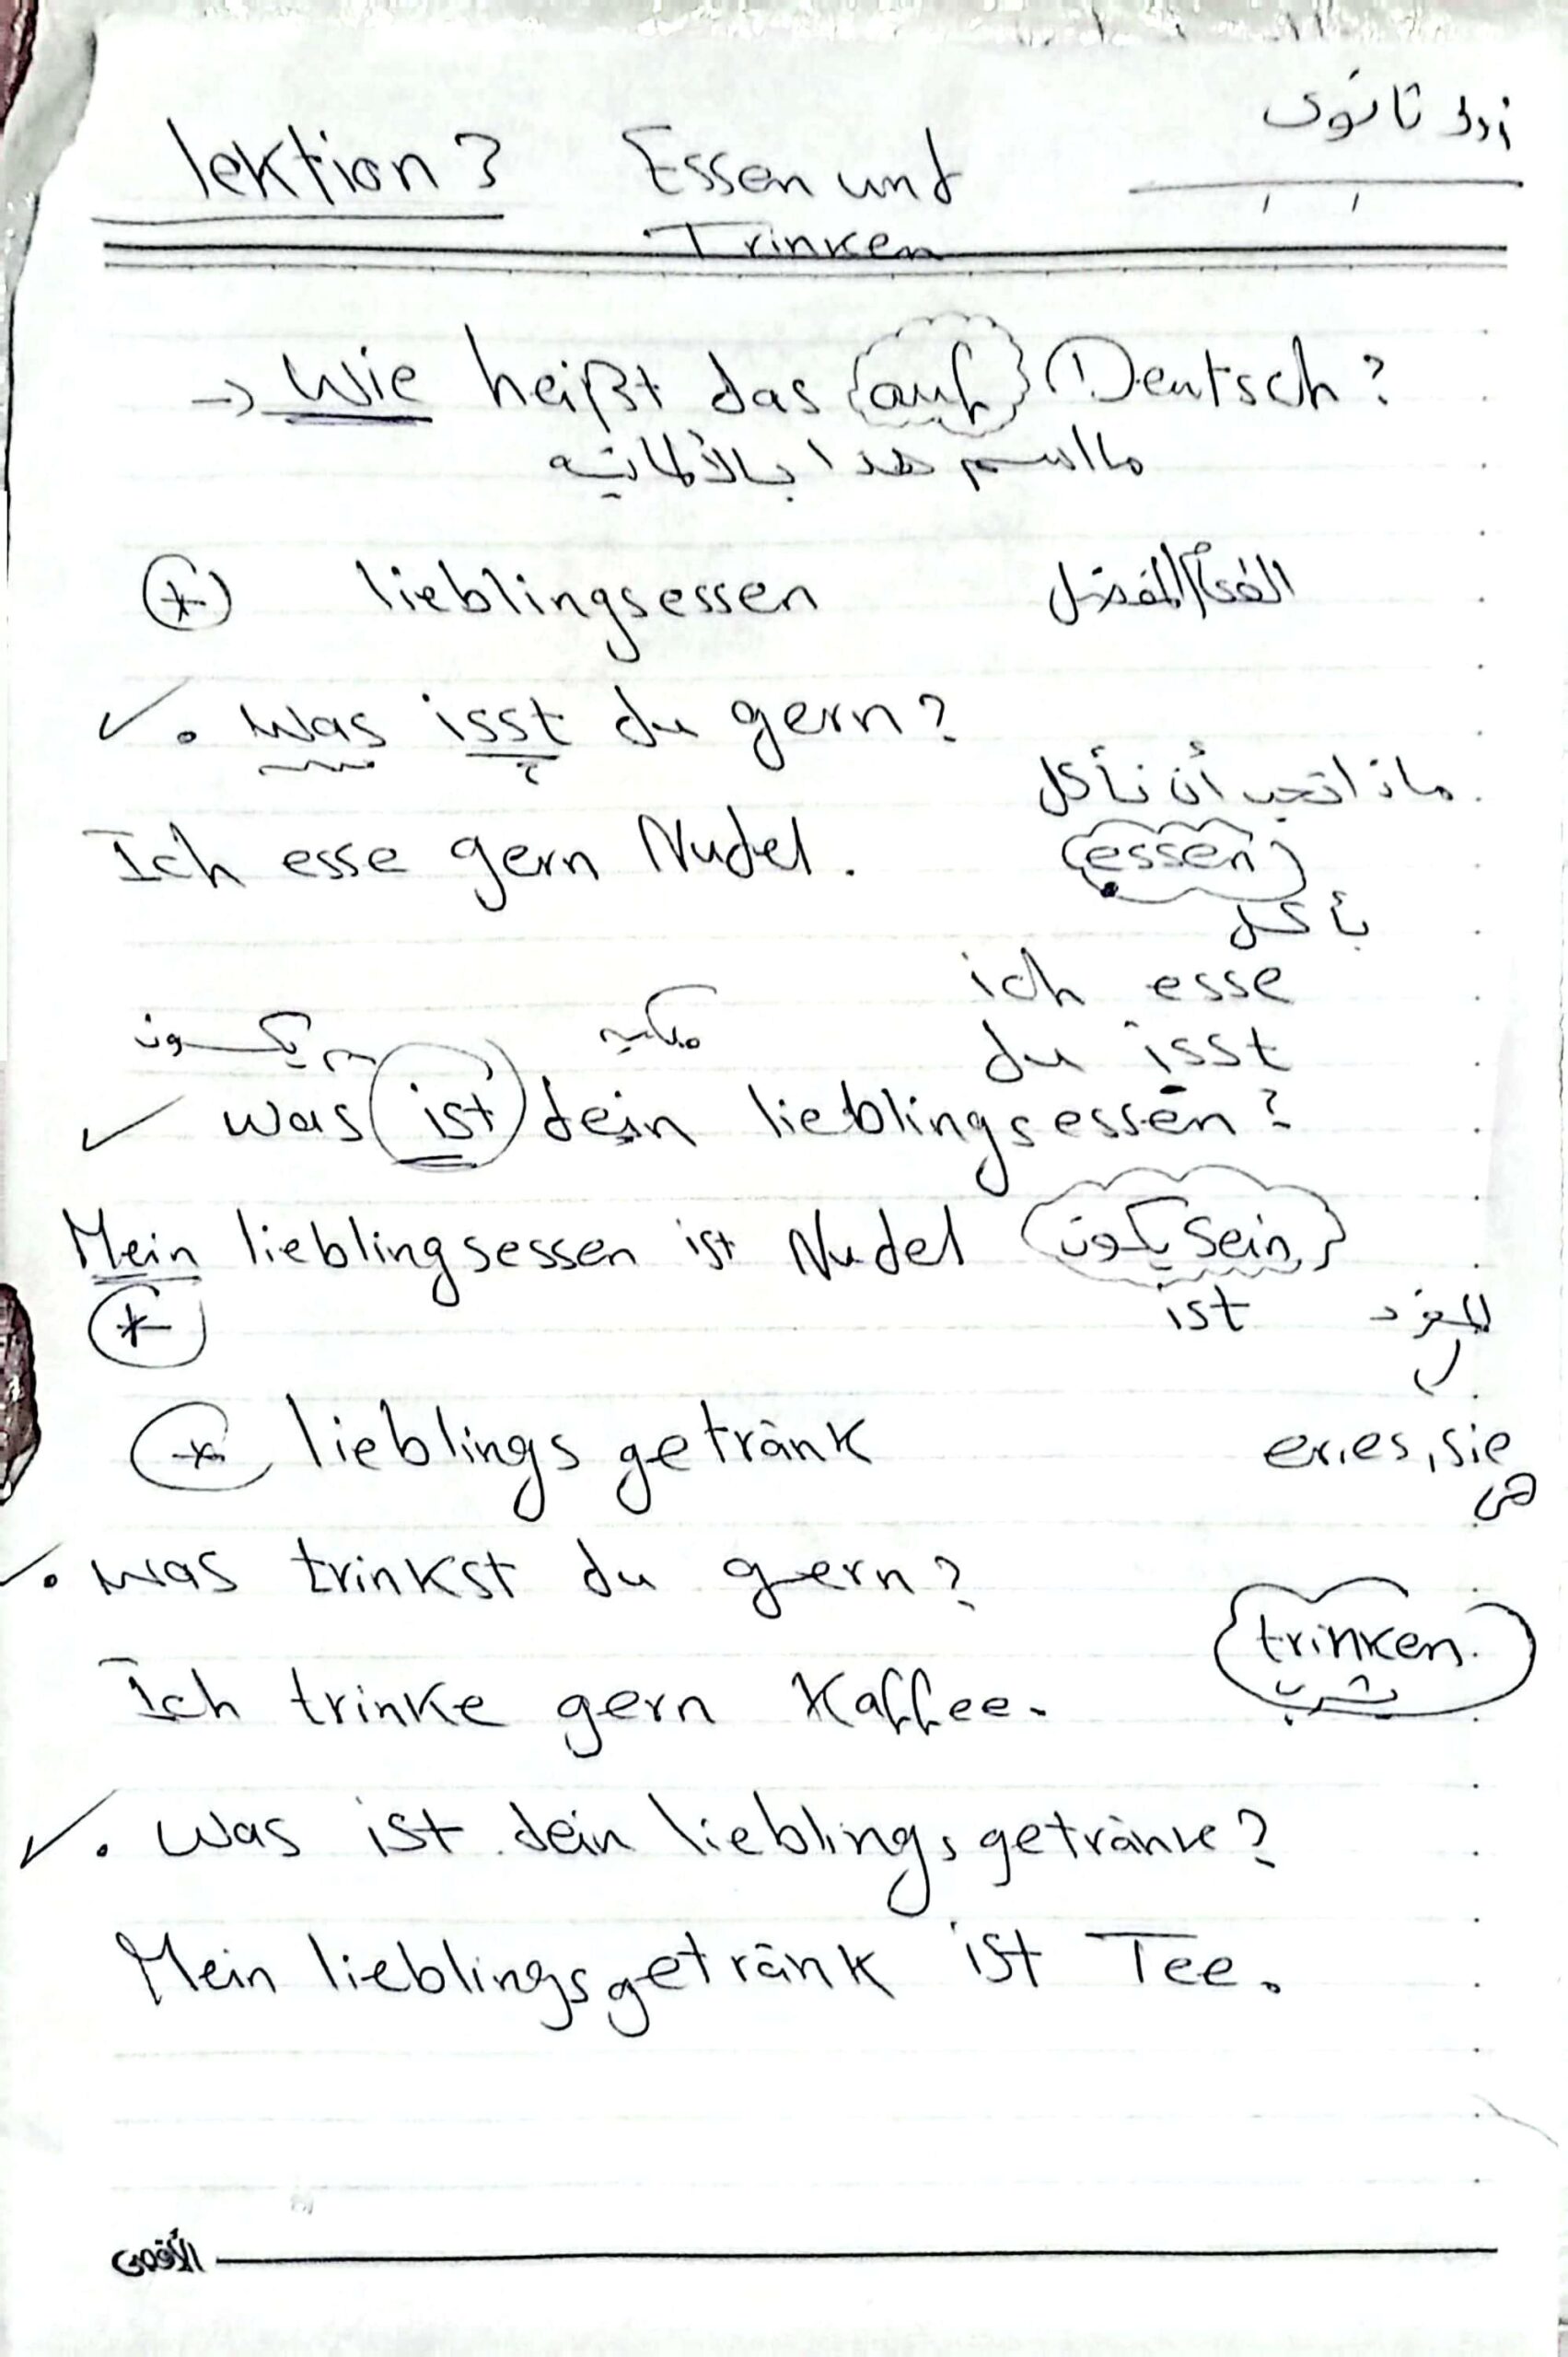 أولى ثانوى
lektion 3 Essen und
Trinken
→ Wie heißt das auf Deutsch?
ما اسم هذا بالألمانيه
* lieblingsessen الطعام المفضل
✓ • Was isst du gern?
ماذا تحب أن تأكل
Ich esse gern Nudel. essen
يأكل
ich esse
يكون du isst
✓ was ist dein lieblingsessen?
Mein lieblingsessen ist Nudel يكون sein
* ist للمفرد
* lieblings getränk er, es, sie
هى
✓ • was trinkst du gern?
trinken
يشرب
Ich trinke gern Kaffee.
✓ • Was ist dein lieblingsgetränke?
Mein lieblingsgetränk ist Tee.
الأقصى